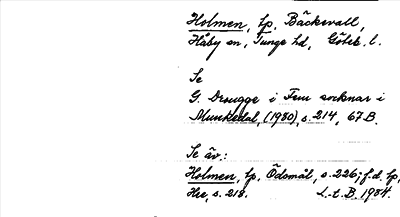 Holmen, lp, Bäckevall,
Håby sn, Tunge hd, Göteb. l.
Se
G. Drougge i Fem socknar i
Munkedal, (1980), s. 214, 67 B.
Se äv.:
Holmen, lp, Ödsmål, s. 226; f.d. lp,
Hee, s. 218. L-t. B. 1984.